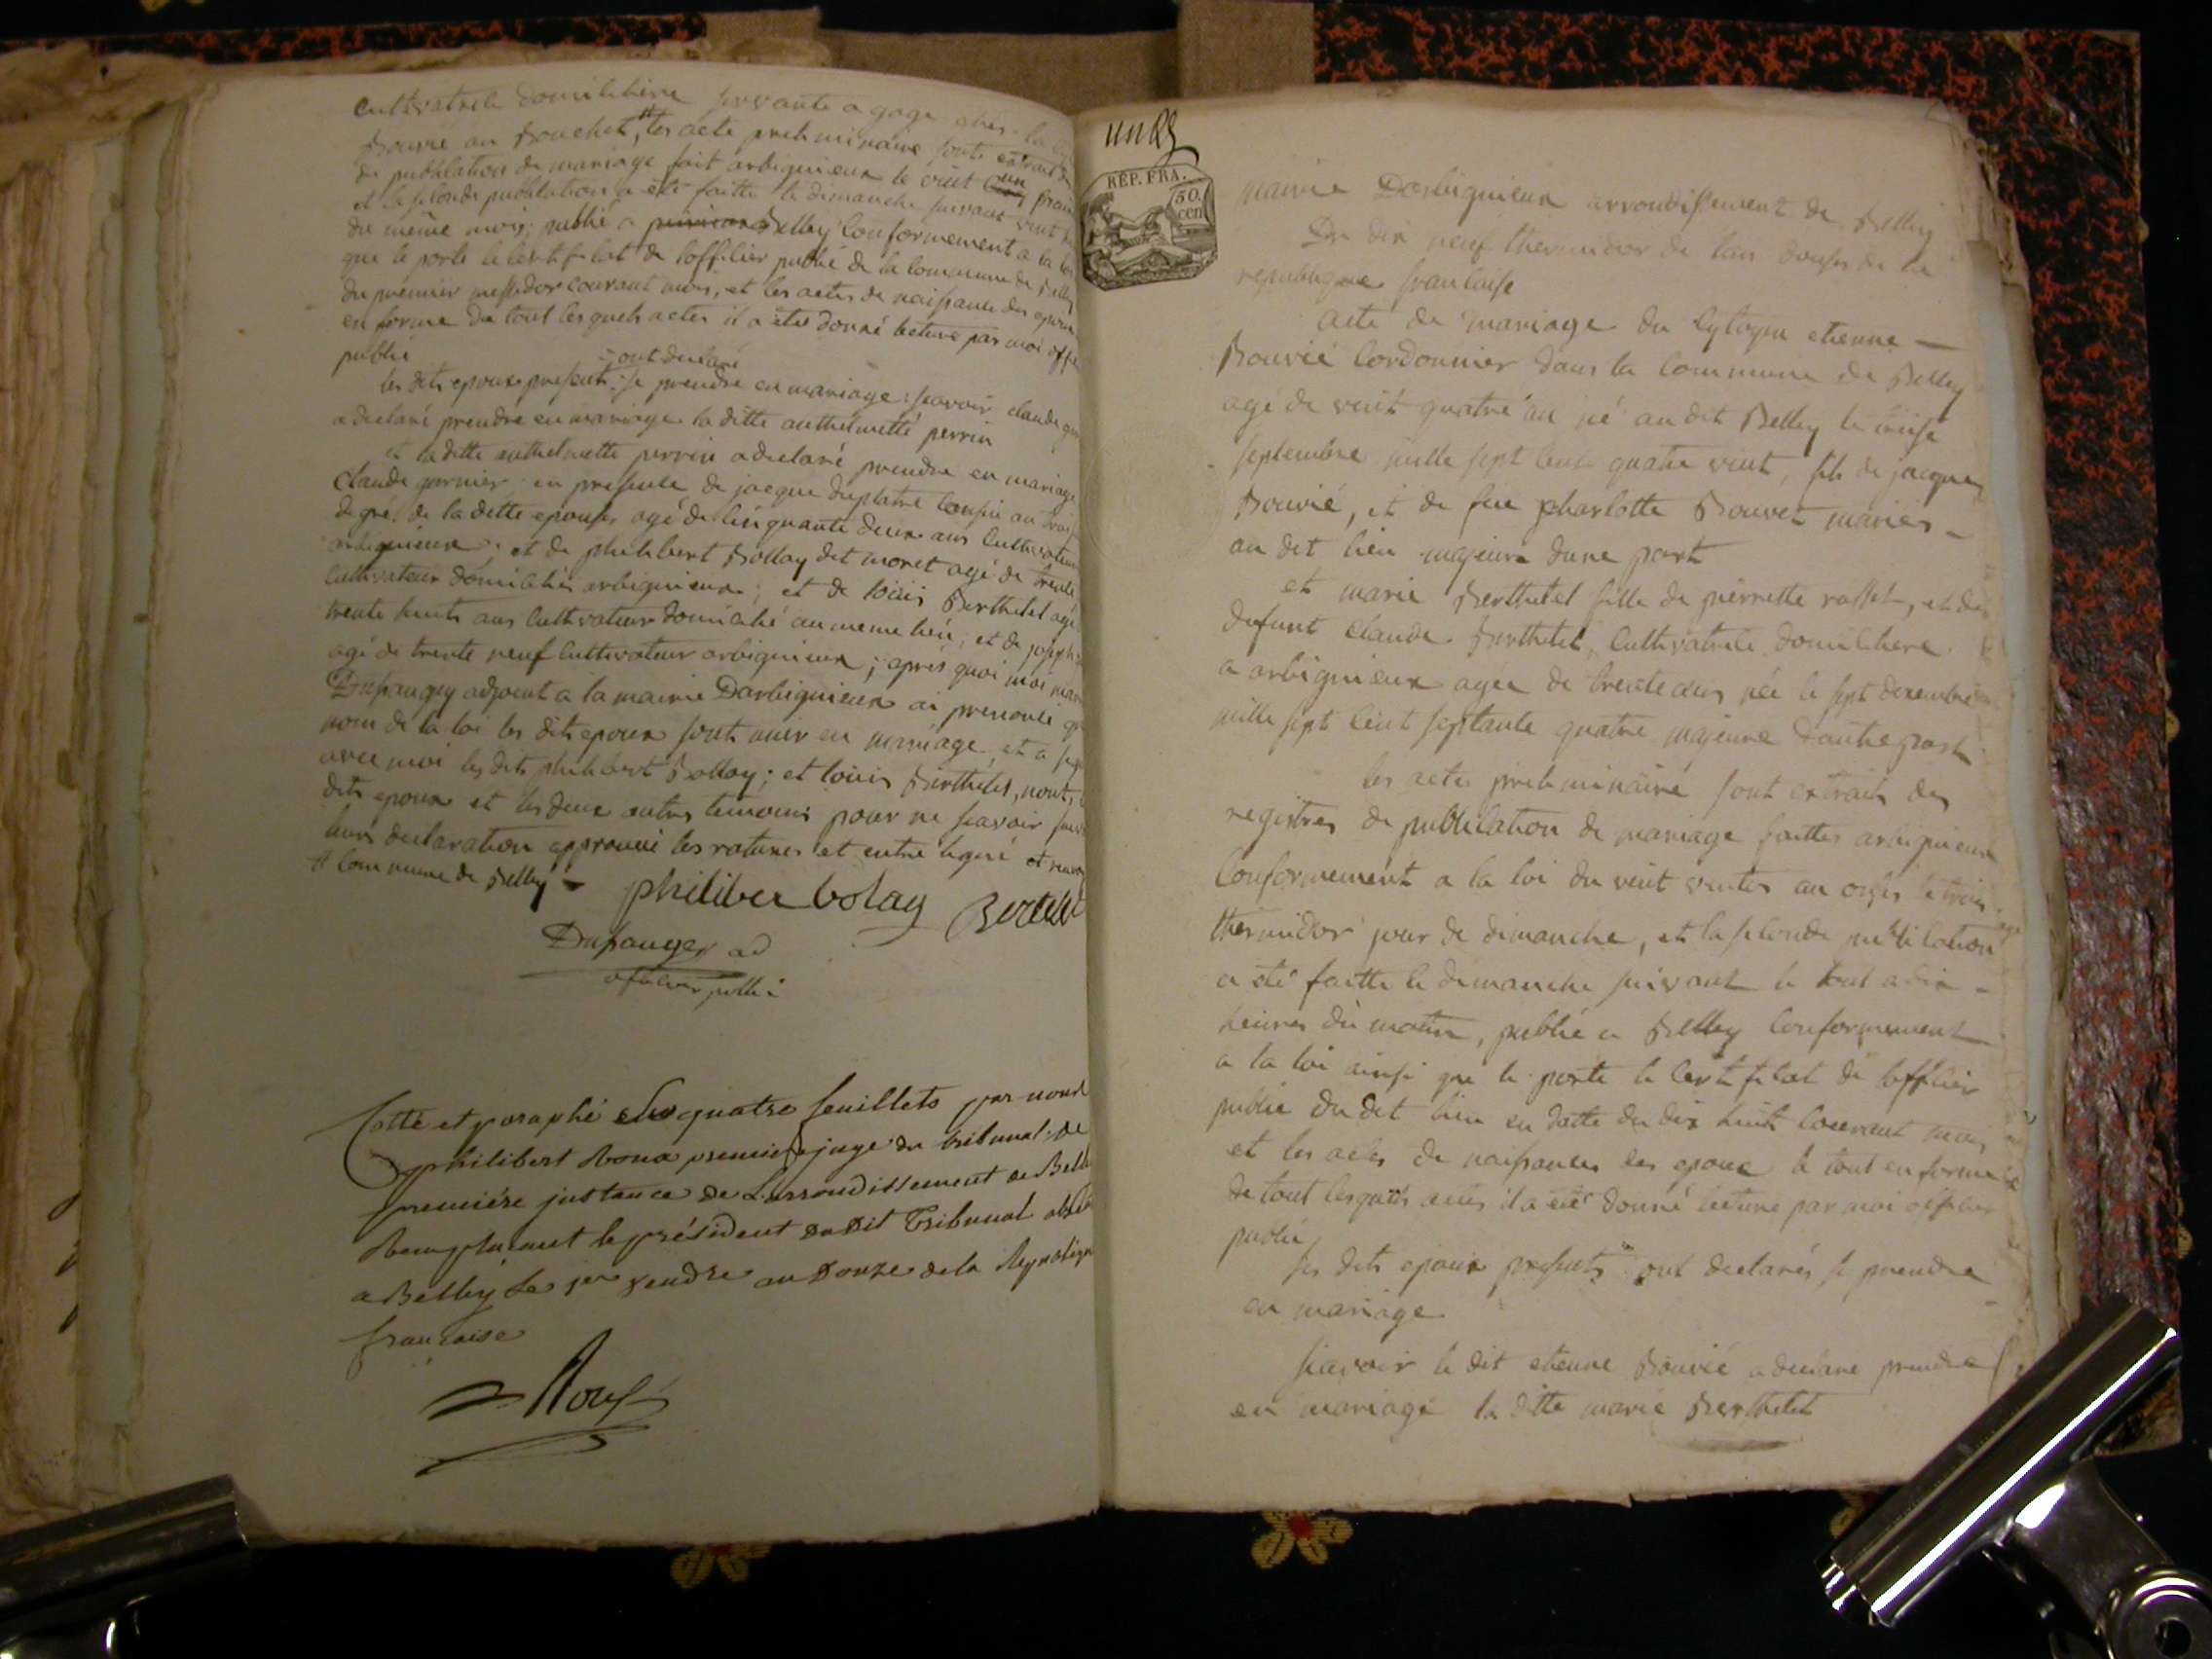 cultivatrice domiciliere servante a gage chés la
Bouvié au Bouchet, les acte preliminaire sonts extrait de
de publilation de mariage fait arbignieux le vint un prair
et la seconde publilation a été faitte le dimanche suivant vint
du même mois, publié a Belley Conformement a la loi
que le porte le Certificat de lofficier publié de la Commune de Belley
du premier messidor courant mois, et les actes de naissance des epoux
en forme de tout lesquels actes il a été donné lecture par moi offi
publié
ont declaré
les dits epoux presents se prendre en mariage : scavoir claude gar
a declaré prendre en mariage la ditte anthelmette perrin
et la ditte anthelmette perrin a declaré prendre en mariage
Claude garnier en presence de jacque duplatre Cousin au trois
degre de la ditte epouse agé de cinquante deux ans Cultivateur
arbignieux et de philibert Bollay dit moret agé de trente
Cultivateur domicilié arbignieux ; et de loüis Berthelet agé
trente huits ans Cultivateur domicilié au meme lieu ; et de joseph
agé de trente neuf Cultivateur arbignieux ; après quoi moi
Dupaugey adjoint a la mairie Darbignieux ai prenoncé qu
nom de la loi les dits epoux sont unir en mariage et a sig
avec moi les dits philibert Bollay ; et loüis Berthelet, nont
dits epoux et les deux autres temoins pour ne scavoir
leurs declaration approuvé les ratures et entre ligne et renv
# Commune de Belley
philiber bolay Bertelet
Dupaugey ad
officier publié
Cotté et paraphé quatre feuillets par nous
philibert Roux premier juge du tribunal de
première instance de Larrondissement de Belle
Remplacant le président dudit Tribunal
a Belley le 1er vendre an Douze de la Republiqu
française
Roux
un
RÉP. FRA.
50. cen
Mairie Darbignieux arrondissement de Belley
Du dix neuf thermidor de lan douse de la
republique francaise
acte de mariage du Cytoyen etienne —
Bouvié Cordonnier dans la Commune de Belley
agé de vint quatre an né au dit Belley le treise
septembre mille sept cent quatre vint, fils de jacque
Bouvié, et de feue charlotte Bouvet mariés -
au dit lieu majeure dune part
et marie Berthelet fille de pierrette rosset, et de
defunt claude Berthelet, cultivatrice domiciliere
a arbignieux agée de trente ans née le sept decembre
mille sept cent septante quatre majeure dautre part
les actes preliminaire sont extraits des
registres de publilation de mariage faittes arbignieux
Conformement a la loi du vint ventos an onse le trois
thermidor jour de dimanche, et la seconde publilation
a été faitte le dimanche suivant le tout a dix -
heures du matin, publié a Belley Conformement
a la loi ainsi que le porte le Certificat de lofficier
publié du dit lieu en datte du dix huit Courant mois
et les actes de naissances des epoux le tout en forme
de tout lesquels actes il a été donné lecture par moi officier
publié
les dits epoux presents ont declarés se prendre
en mariage
scavoir le dit etienne Bouvié a declaré prendre
en mariage la ditte marie Berthelet